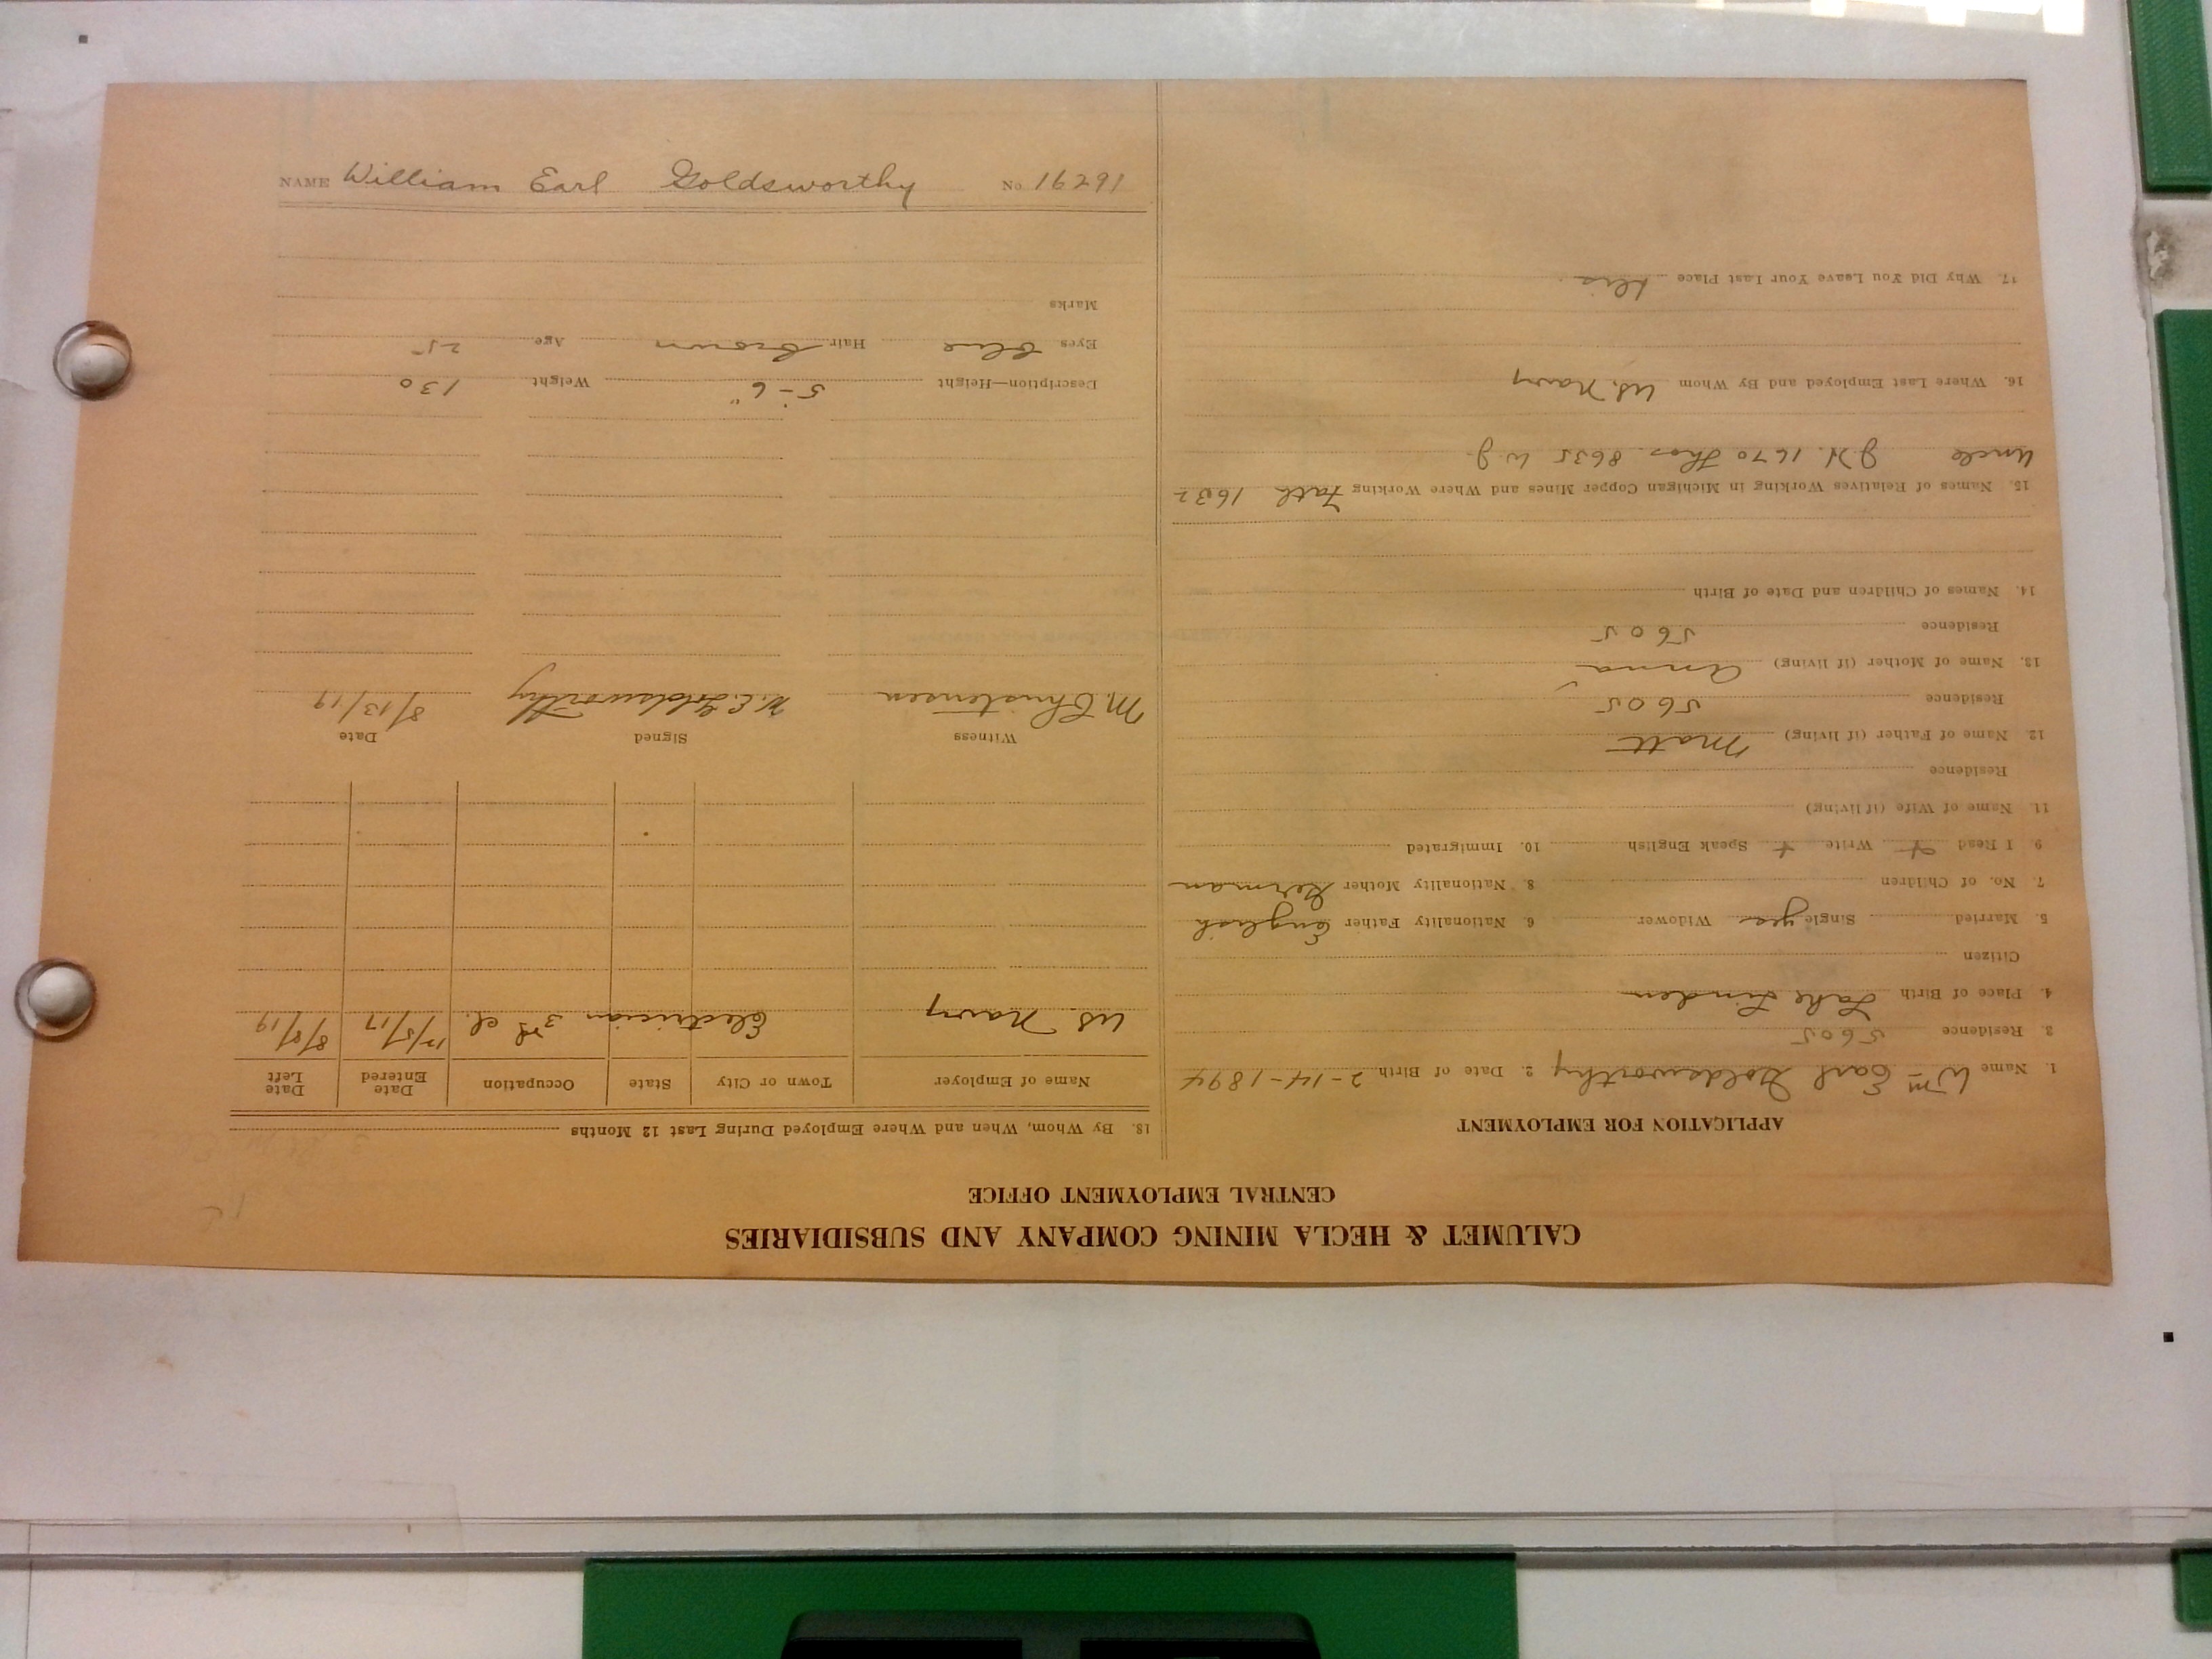 CALUMET & HECLA MINING COMPANY AND SUBSIDIARIES
CENTRAL EMPLOYMENT OFFICE
APPLICATION FOR EMPLOYMENT
1. Name Wm Earl Goldsworthy 2. Date of Birth 2-14-1894
3. Residence 5605
4. Place of Birth Lake Linden
Citizen
5. Married Single yes Widower 6. Nationality Father English
7. No. of Children 8. Nationality Mother German
9. I Read + Write + Speak English 10. Immigrated
11. Name of Wife (if living)
Residence
12. Name of Father (if living) Matt
Residence 5605
13. Name of Mother (if living) Anna
Residence 5605
14. Names of Children and Date of Birth
15. Names of Relatives Working in Michigan Copper Mines and Where Working Fath 1632
Uncle J.H. 1670 Thos. 8635 W J
16. Where Last Employed and By Whom US. Navy
17. Why Did You Leave Your Last Place Dis
18. By Whom, When and Where Employed During Last 12 Months
Name of Employer Town or City State Occupation Date Entered Date Left
US. Navy Electrician 3rd cl. 12/5/17 8/8/19
Witness Signed Date
M. Christensen W.E. Goldsworthy 8/13/19
Description—Height 5'-6" Weight 130
Eyes blue Hair brown Age 25
Marks
NAME William Earl Goldsworthy No. 16291